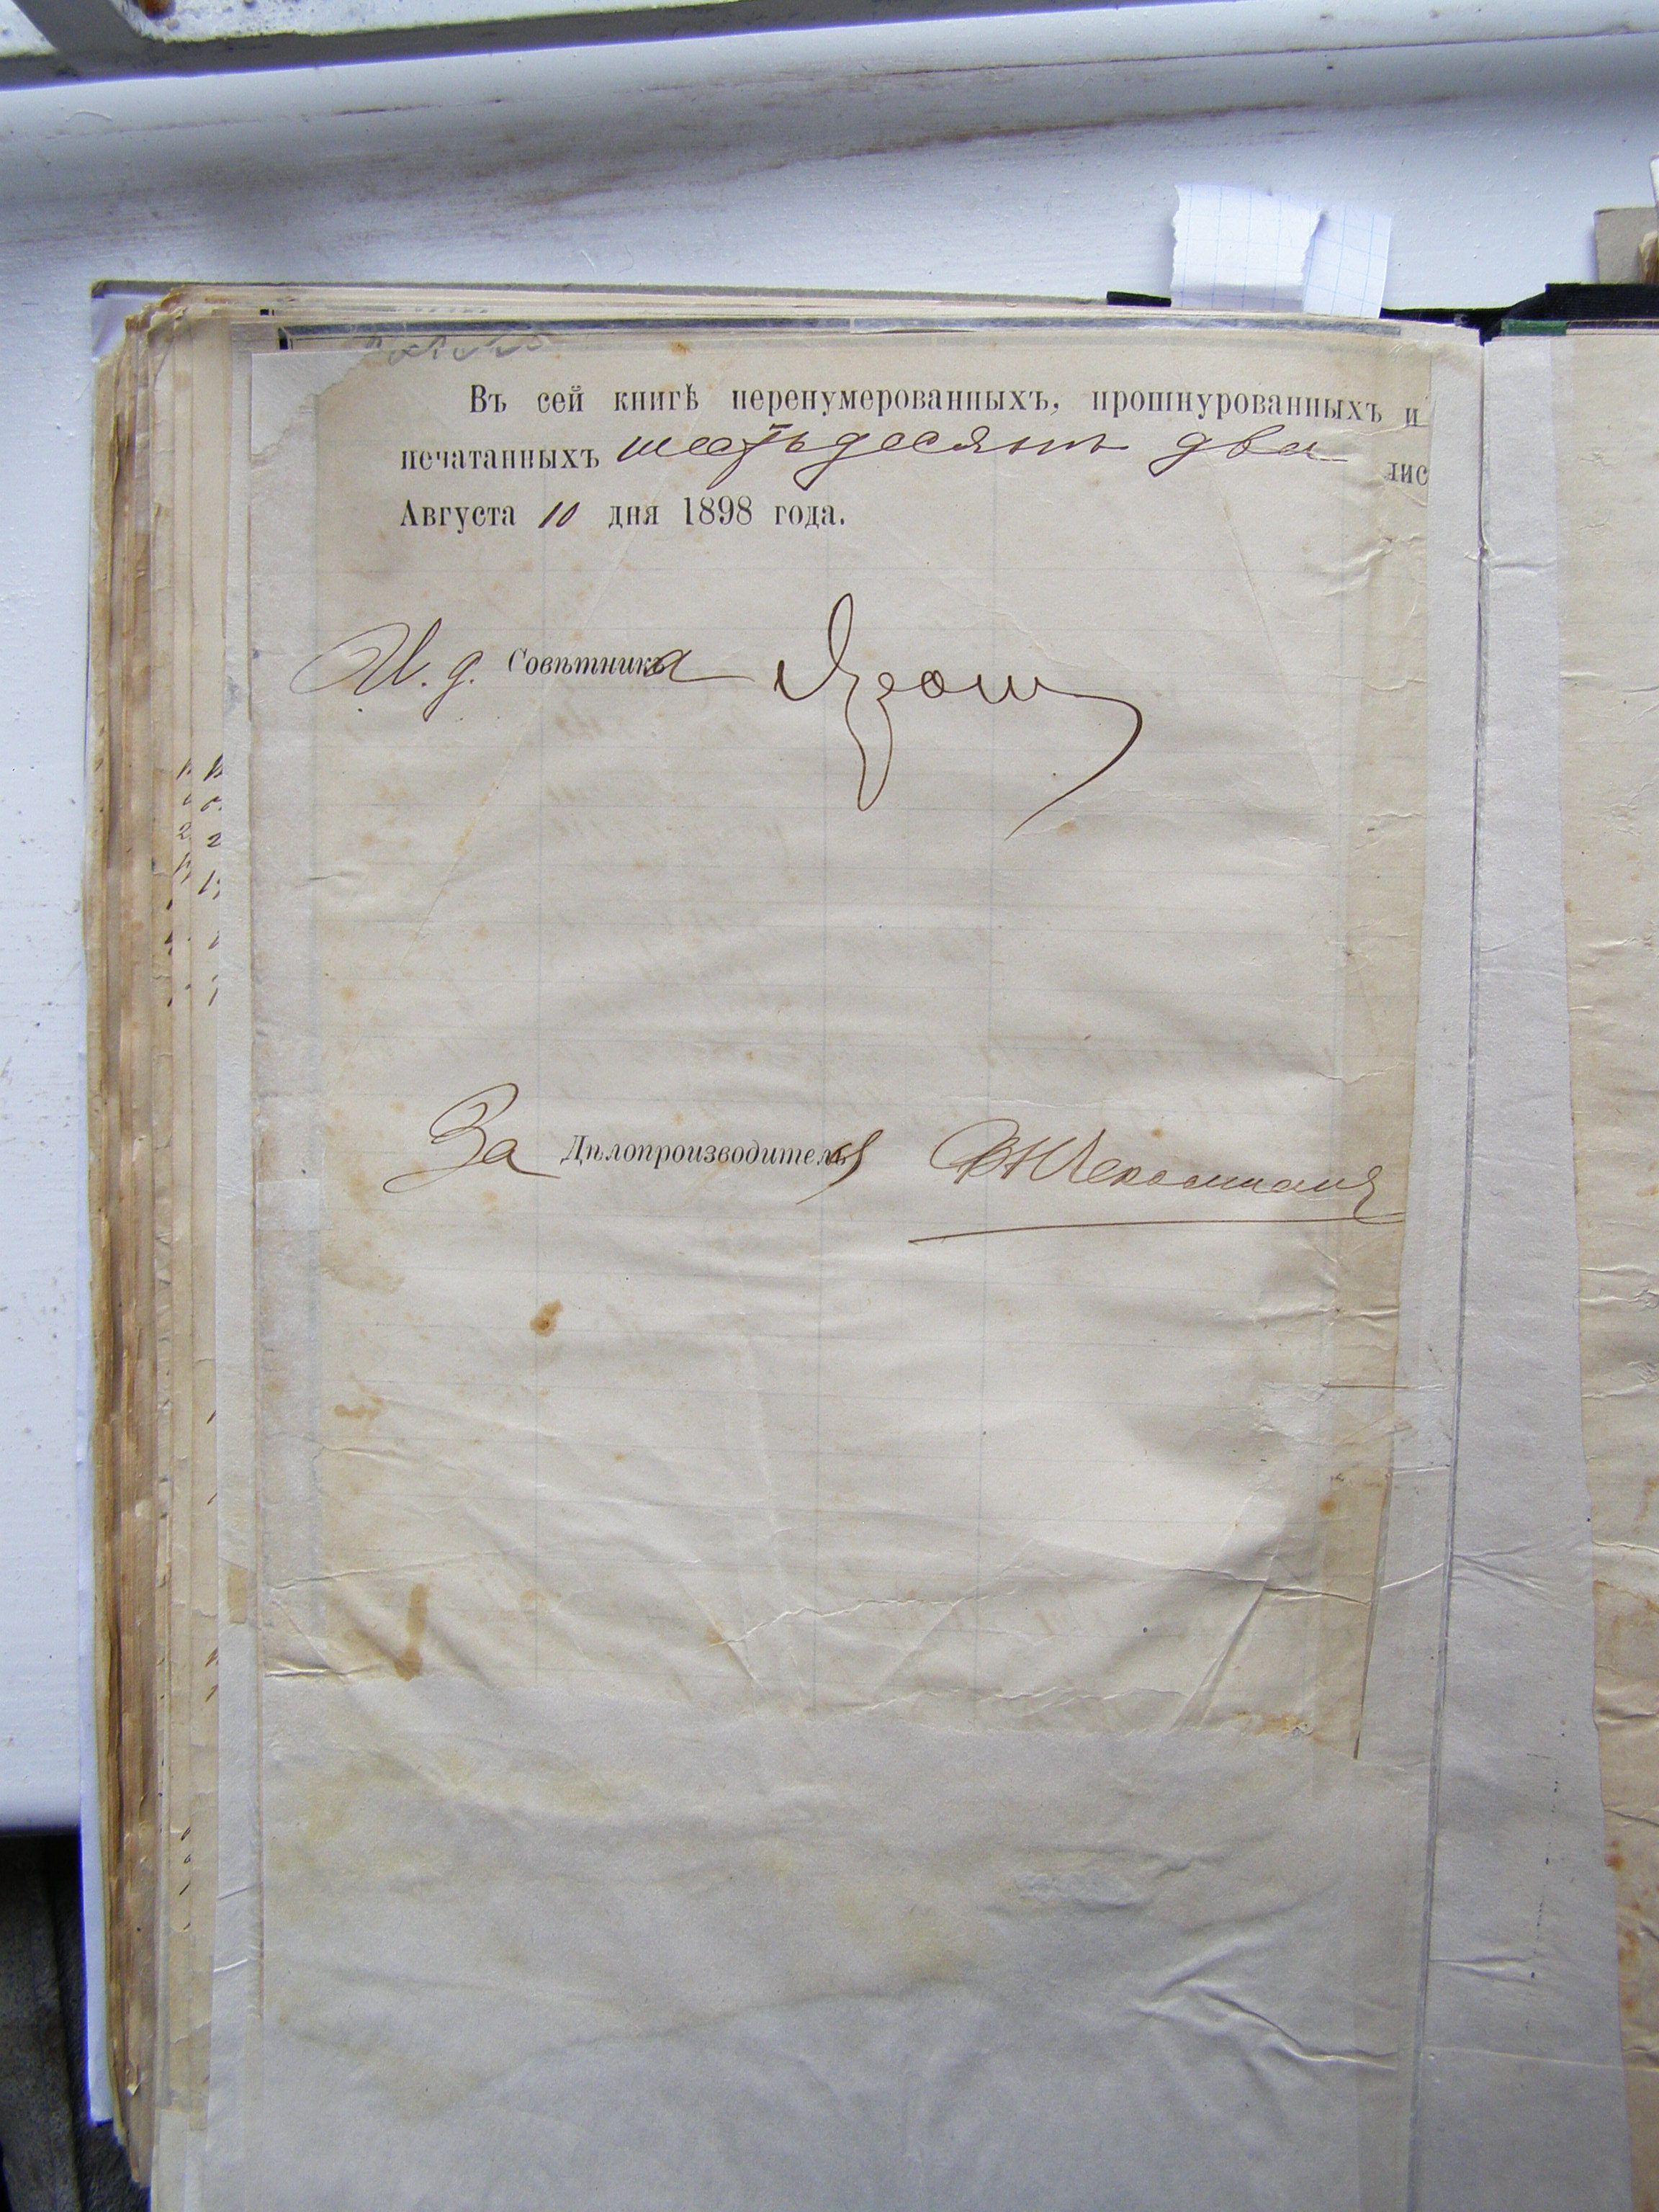 Въ сей книгѣ перенумерованныхъ, прошнурованныхъ и
печатанныхъ шестьдесятъ два лис
Августа 10 дня 1898 года.
И. д. Совѣтника
За Дѣлопроизводителя